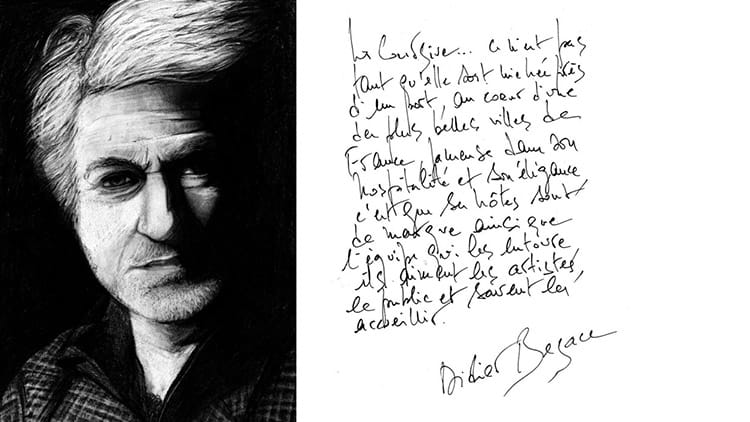 La Coursive... ce n'est pas
tant qu'elle soit nichée près
d'un port, au coeur d'une
des plus belles villes de
France, fameuse dans son
hospitalité et son élégance
c'est que ses hôtes sont
de marque ainsi que
l'équipe qui les entoure,
ils aiment les artistes,
le public et savent les
accueillir.
Didier Bezace